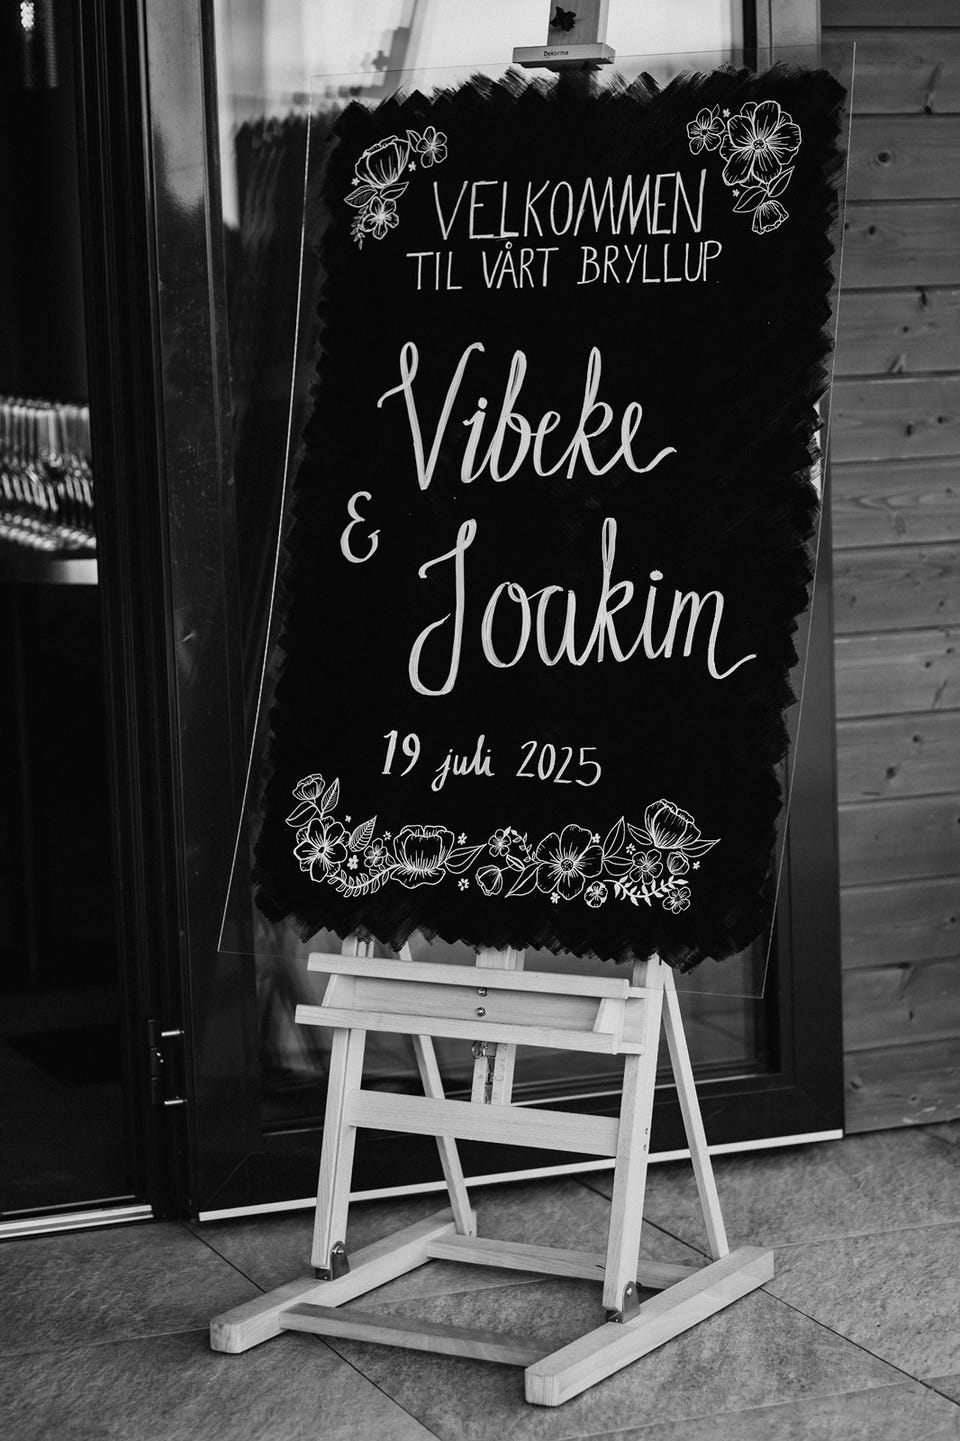 Dekorima
VELKOMMEN
TIL VÅRT BRYLLUP
Vibeke
&
Joakim
19 juli 2025